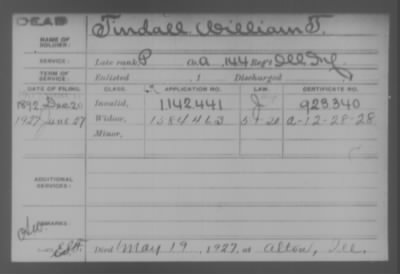 DEAD
NAME OF SOLDIER: Tindall, William T.
SERVICE: Late rank P Co. A, 144 Reg't Ill Inf
TERM OF SERVICE: Enlisted , 1 Discharged
DATE OF FILING. CLASS. APPLICATION NO. LAW. CERTIFICATE NO.
1892, Dec 20 Invalid, 1.142.441 J 923340
1927 June 27 Widow, 1584463 A-12-28-28
Minor,
ADDITIONAL SERVICES:
REMARKS:
Died May 19, 1927, at Alton, Ill.